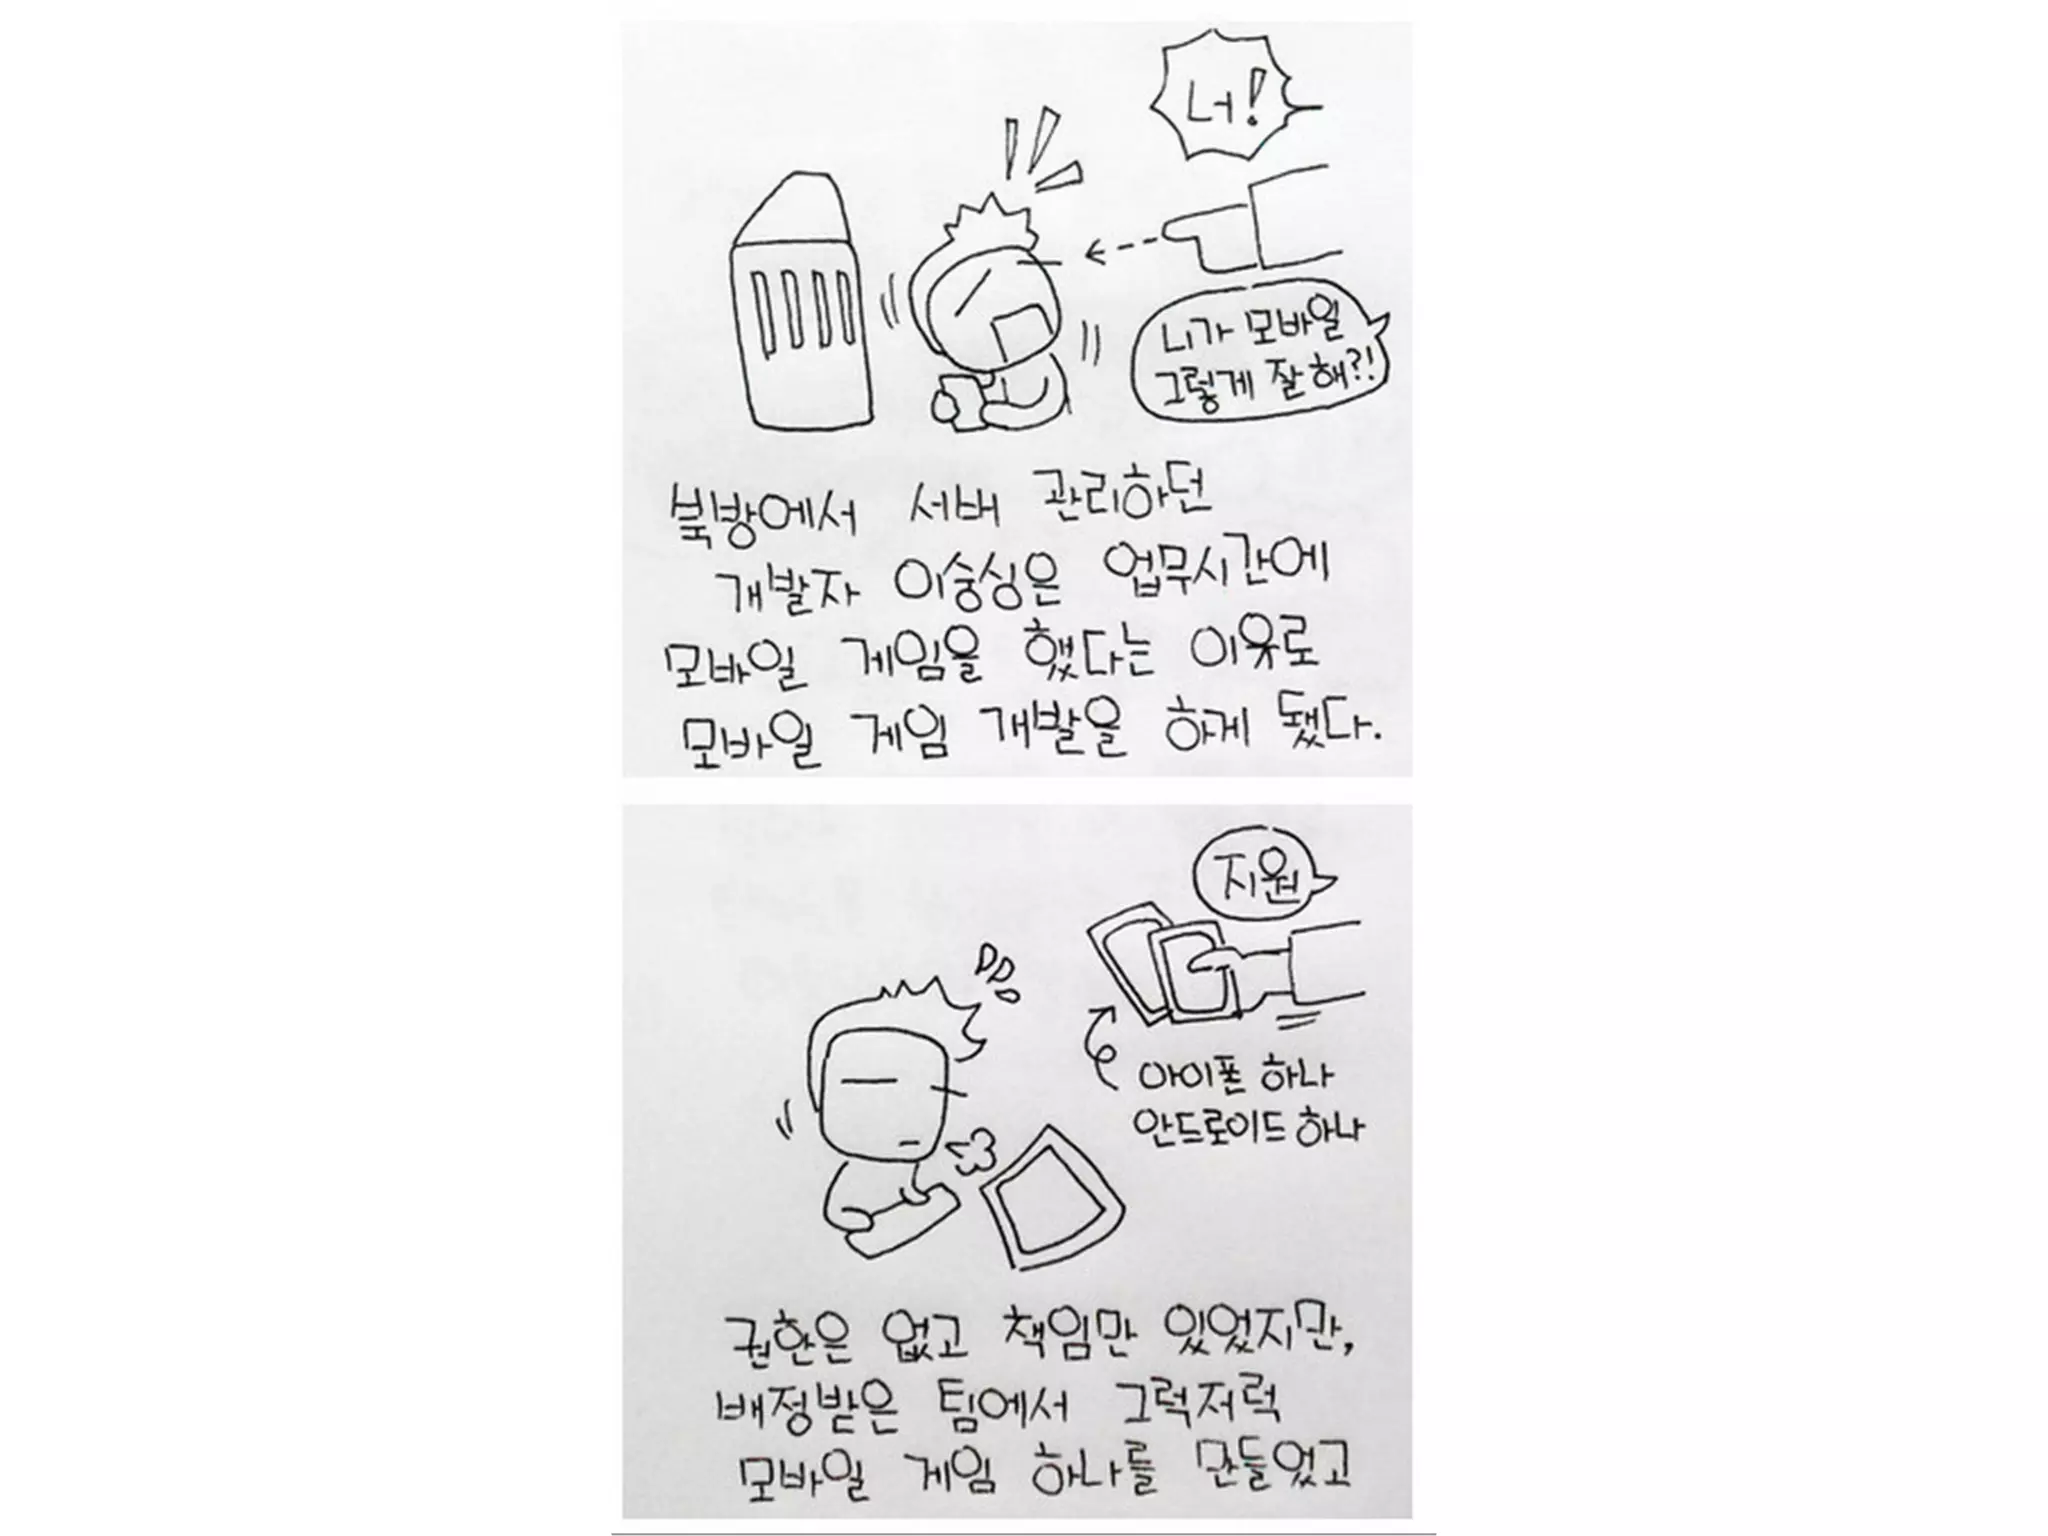 너!
니가 모바일
그렇게 잘해?!
북방에서 서버 관리하던
개발자 이숭싱은 업무시간에
모바일 게임을 했다는 이유로
모바일 게임 개발을 하게 됐다.
지원
아이폰 하나
안드로이드 하나
권한은 없고 책임만 있었지만,
배정받은 팀에서 그럭저럭
모바일 게임 하나를 만들었고